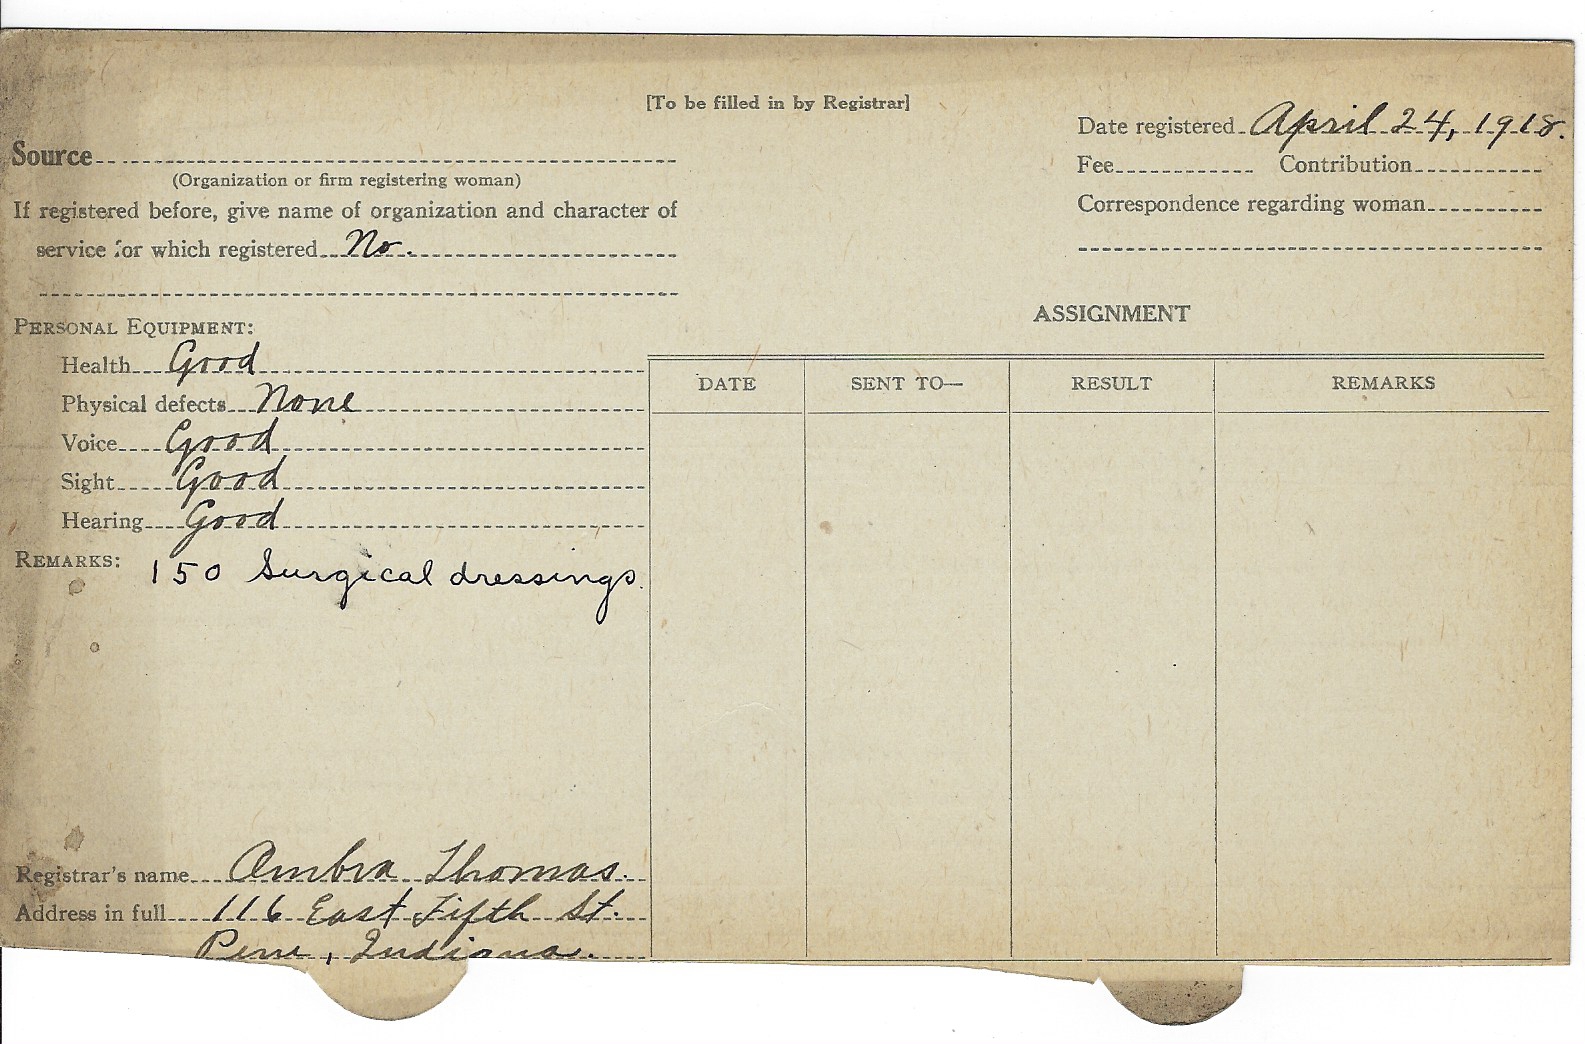 [To be filled in by Registrar]
Date registered April 24, 1918.
Source
(Organization or firm registering woman)
Fee Contribution
If registered before, give name of organization and character of
service for which registered No.
Correspondence regarding woman
ASSIGNMENT
PERSONAL EQUIPMENT:
Health Good
Physical defects None
Voice Good
Sight Good
Hearing Good
REMARKS: 150 Surgical dressings.
DATE SENT TO— RESULT REMARKS
Registrar's name Ombra Thomas.
Address in full 116 East Fifth St.
Peru, Indiana.